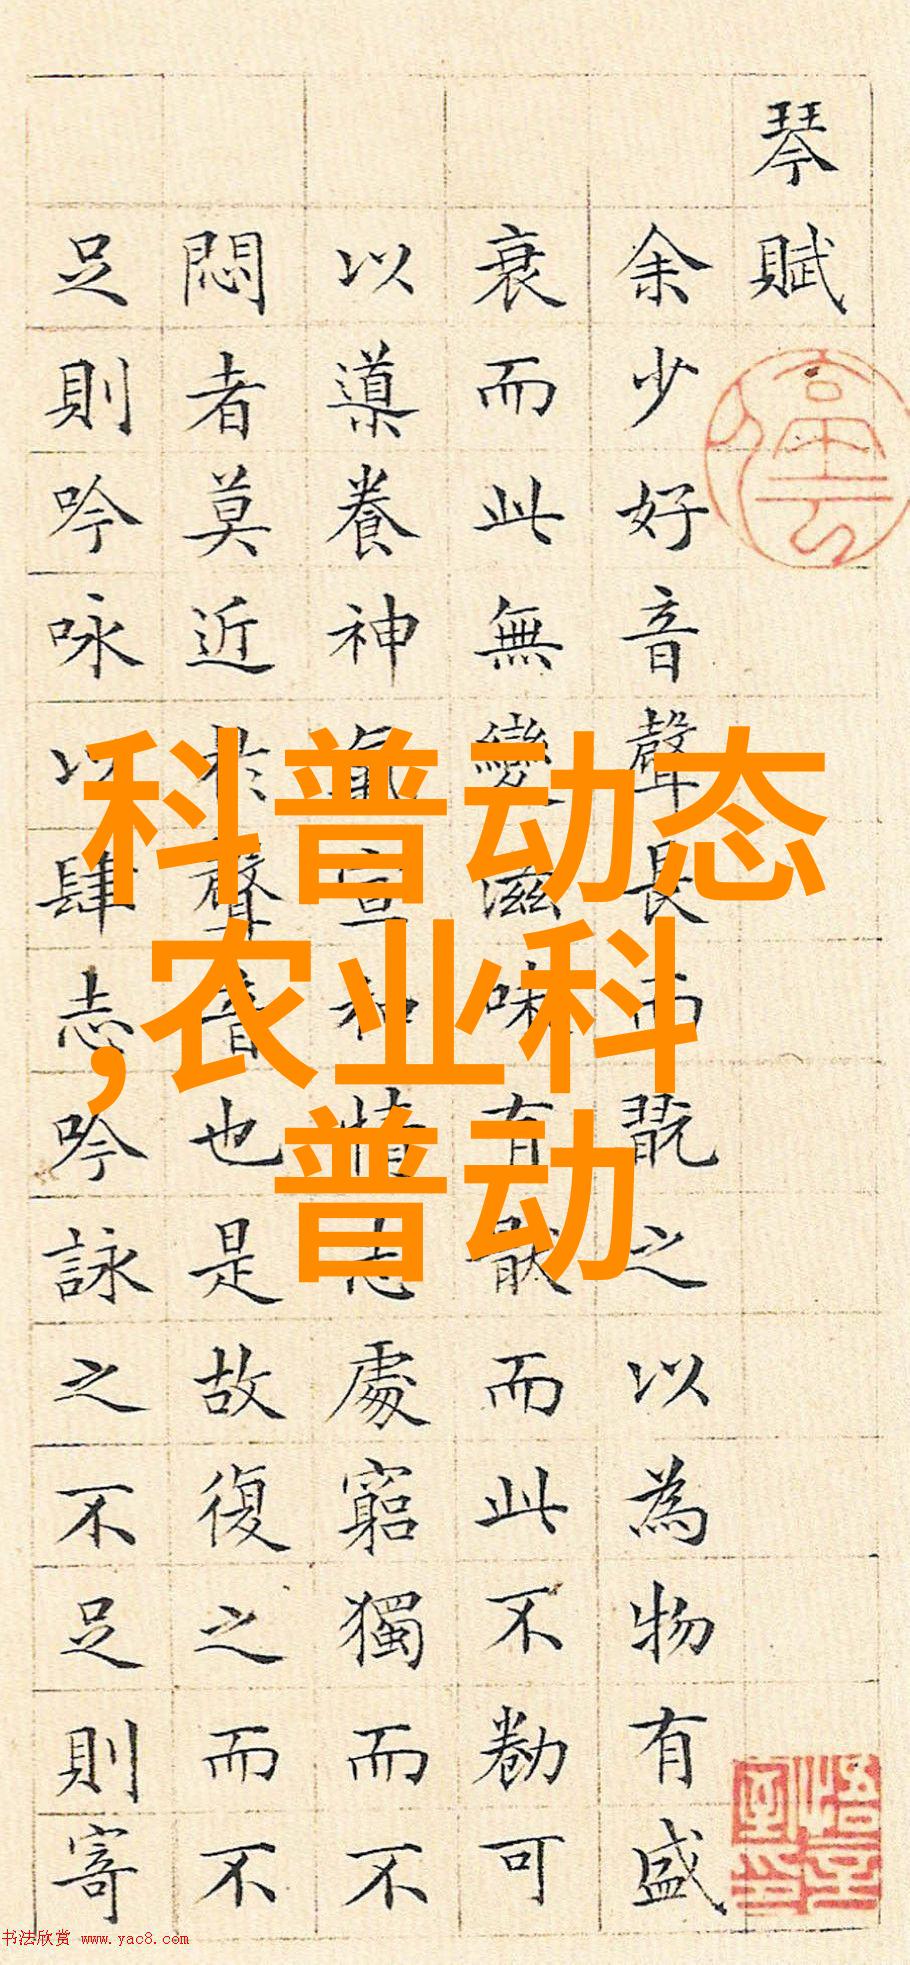 琴賦
余少好音聲長而翫之以為物有盛
衰而此無變滋味有猒而此不勌可
以導養神氣宣和情志處窮獨而不
悶者莫近於聲音也是故復之而不
足則吟咏以肆志吟詠之不足則寄
科普动态
,农业科
普动
书法欣赏 www.yac8.com